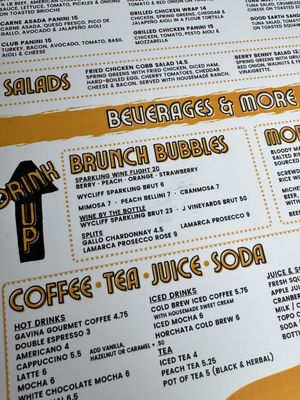 ½ LB BEEF, AMERICAN CHEESE,
LETTUCE, TOMATO, PICKLES & ONIONS
CARNE ASADA PANINI 15
CARNE ASADA, QUESO FRESCO, PICO DE
GALLO, AVOCADO & JALAPEÑO AIOLI
CLUB PANINI 15
TURKEY, BACON, AVOCADO, TOMATO, BASIL
AIOLI & CHEESE
TOMATO & RED ONION
GRILLED CHICKEN WRAP 14
GRILLED CHICKEN, SPRING GREENS, CHEDDAR &
JALAPEÑO AIOLI IN A FLOUR TORTILLA
GRILLED CHICKEN PANINI 15
GRILLED CHICKEN, TOMATO, PESTO AIOLI &
MOZZARELLA
GOOD EARTH
TUNA SALAD,
SALADS
FRIED CHICKEN COBB SALAD 14.5
SPRING GREENS WITH FRIED CHICKEN, DICED HAM,
HARD-BOILED EGG, CHERRY TOMATOES, CHEDDAR
CHEESE & BACON, SERVED WITH HOUSEMADE RANCH
BERRY BENNY SALAD
SPRING GREENS WITH
RED ONION, WALNUTS
VINAIGRETTE.
BEVERAGES & MORE
DRINK
UP
BRUNCH BUBBLES
SPARKLING WINE FLIGHT 20
BERRY • PEACH • ORANGE • STRAWBERRY
WYCLIFF SPARKLING BRUT 6
MIMOSA 7 • PEACH BELLINI 7 • CRANMOSA 7
WINE BY THE BOTTLE
WYCLIFF SPARKLING BRUT 23 • J VINEYARDS BRUT 50
SPLITS
GALLO CHARDONNAY 4.5
LAMARCA PROSECCO 9
LAMARCA PROSECCO ROSE 9
BLOODY
SALTED
COFFEE • TEA • JUICE • SODA
HOT DRINKS
GAVINA GOURMET COFFEE 4.75
DOUBLE ESPRESSO 3
AMERICANO 4
CAPPUCCINO 5.5
LATTE 6
MOCHA 6
WHITE CHOCOLATE MOCHA 6
ADD VANILLA,
HAZELNUT OR CARAMEL + .50
ICED DRINKS
COLD BREW ICED COFFEE 4.75
WITH HOUSEMADE SWEET CREAM
ICED MOCHA 6
HORCHATA COLD BREW 6
TEA
ICED TEA 4
PEACH TEA 5.25
POT OF TEA 5 (BLACK & HERBAL)
JUICE &
FRESH
APPLE
CRANB
MILK |
TOPO
SODA
BOTTL